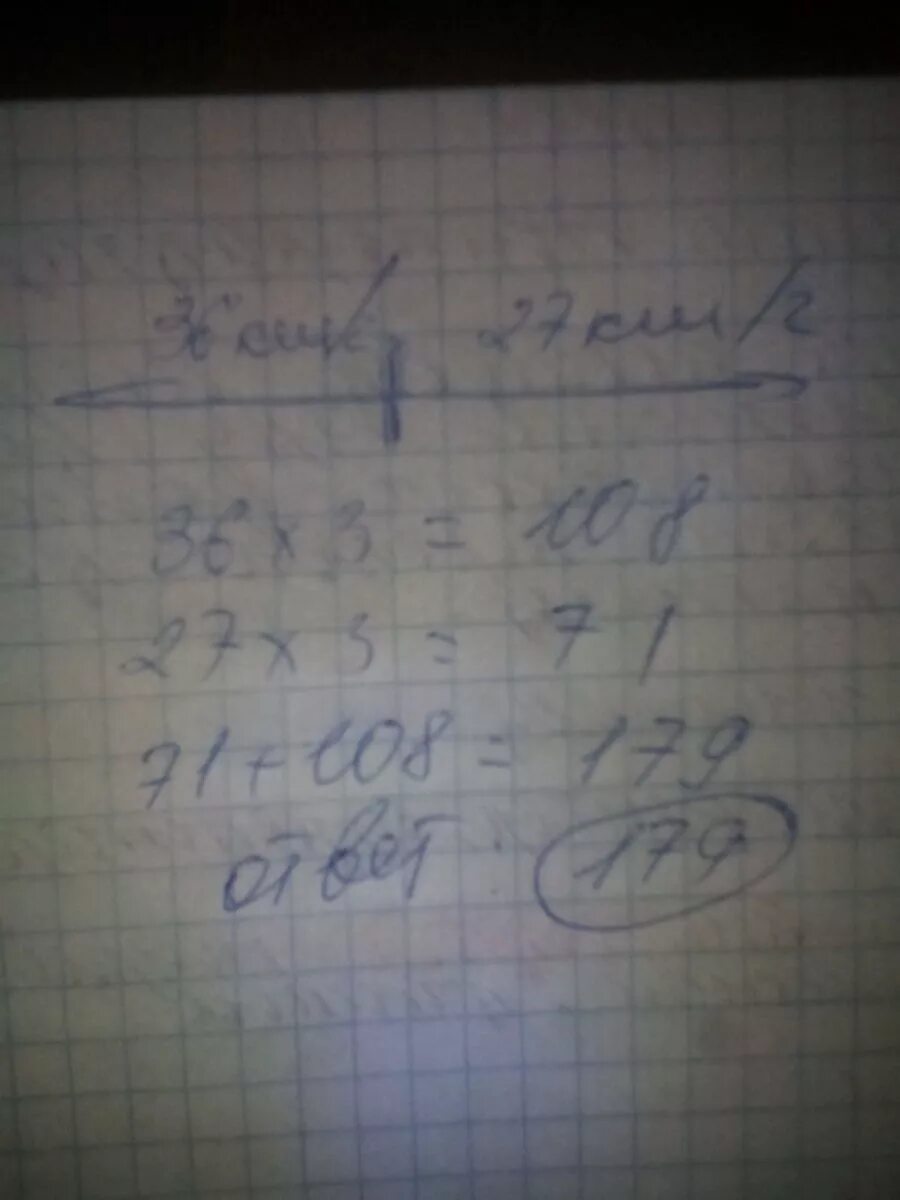 36 км/ 27 км/г
36 × 3 = 108
27 × 3 = 71
71 + 108 = 179
ответ : 179